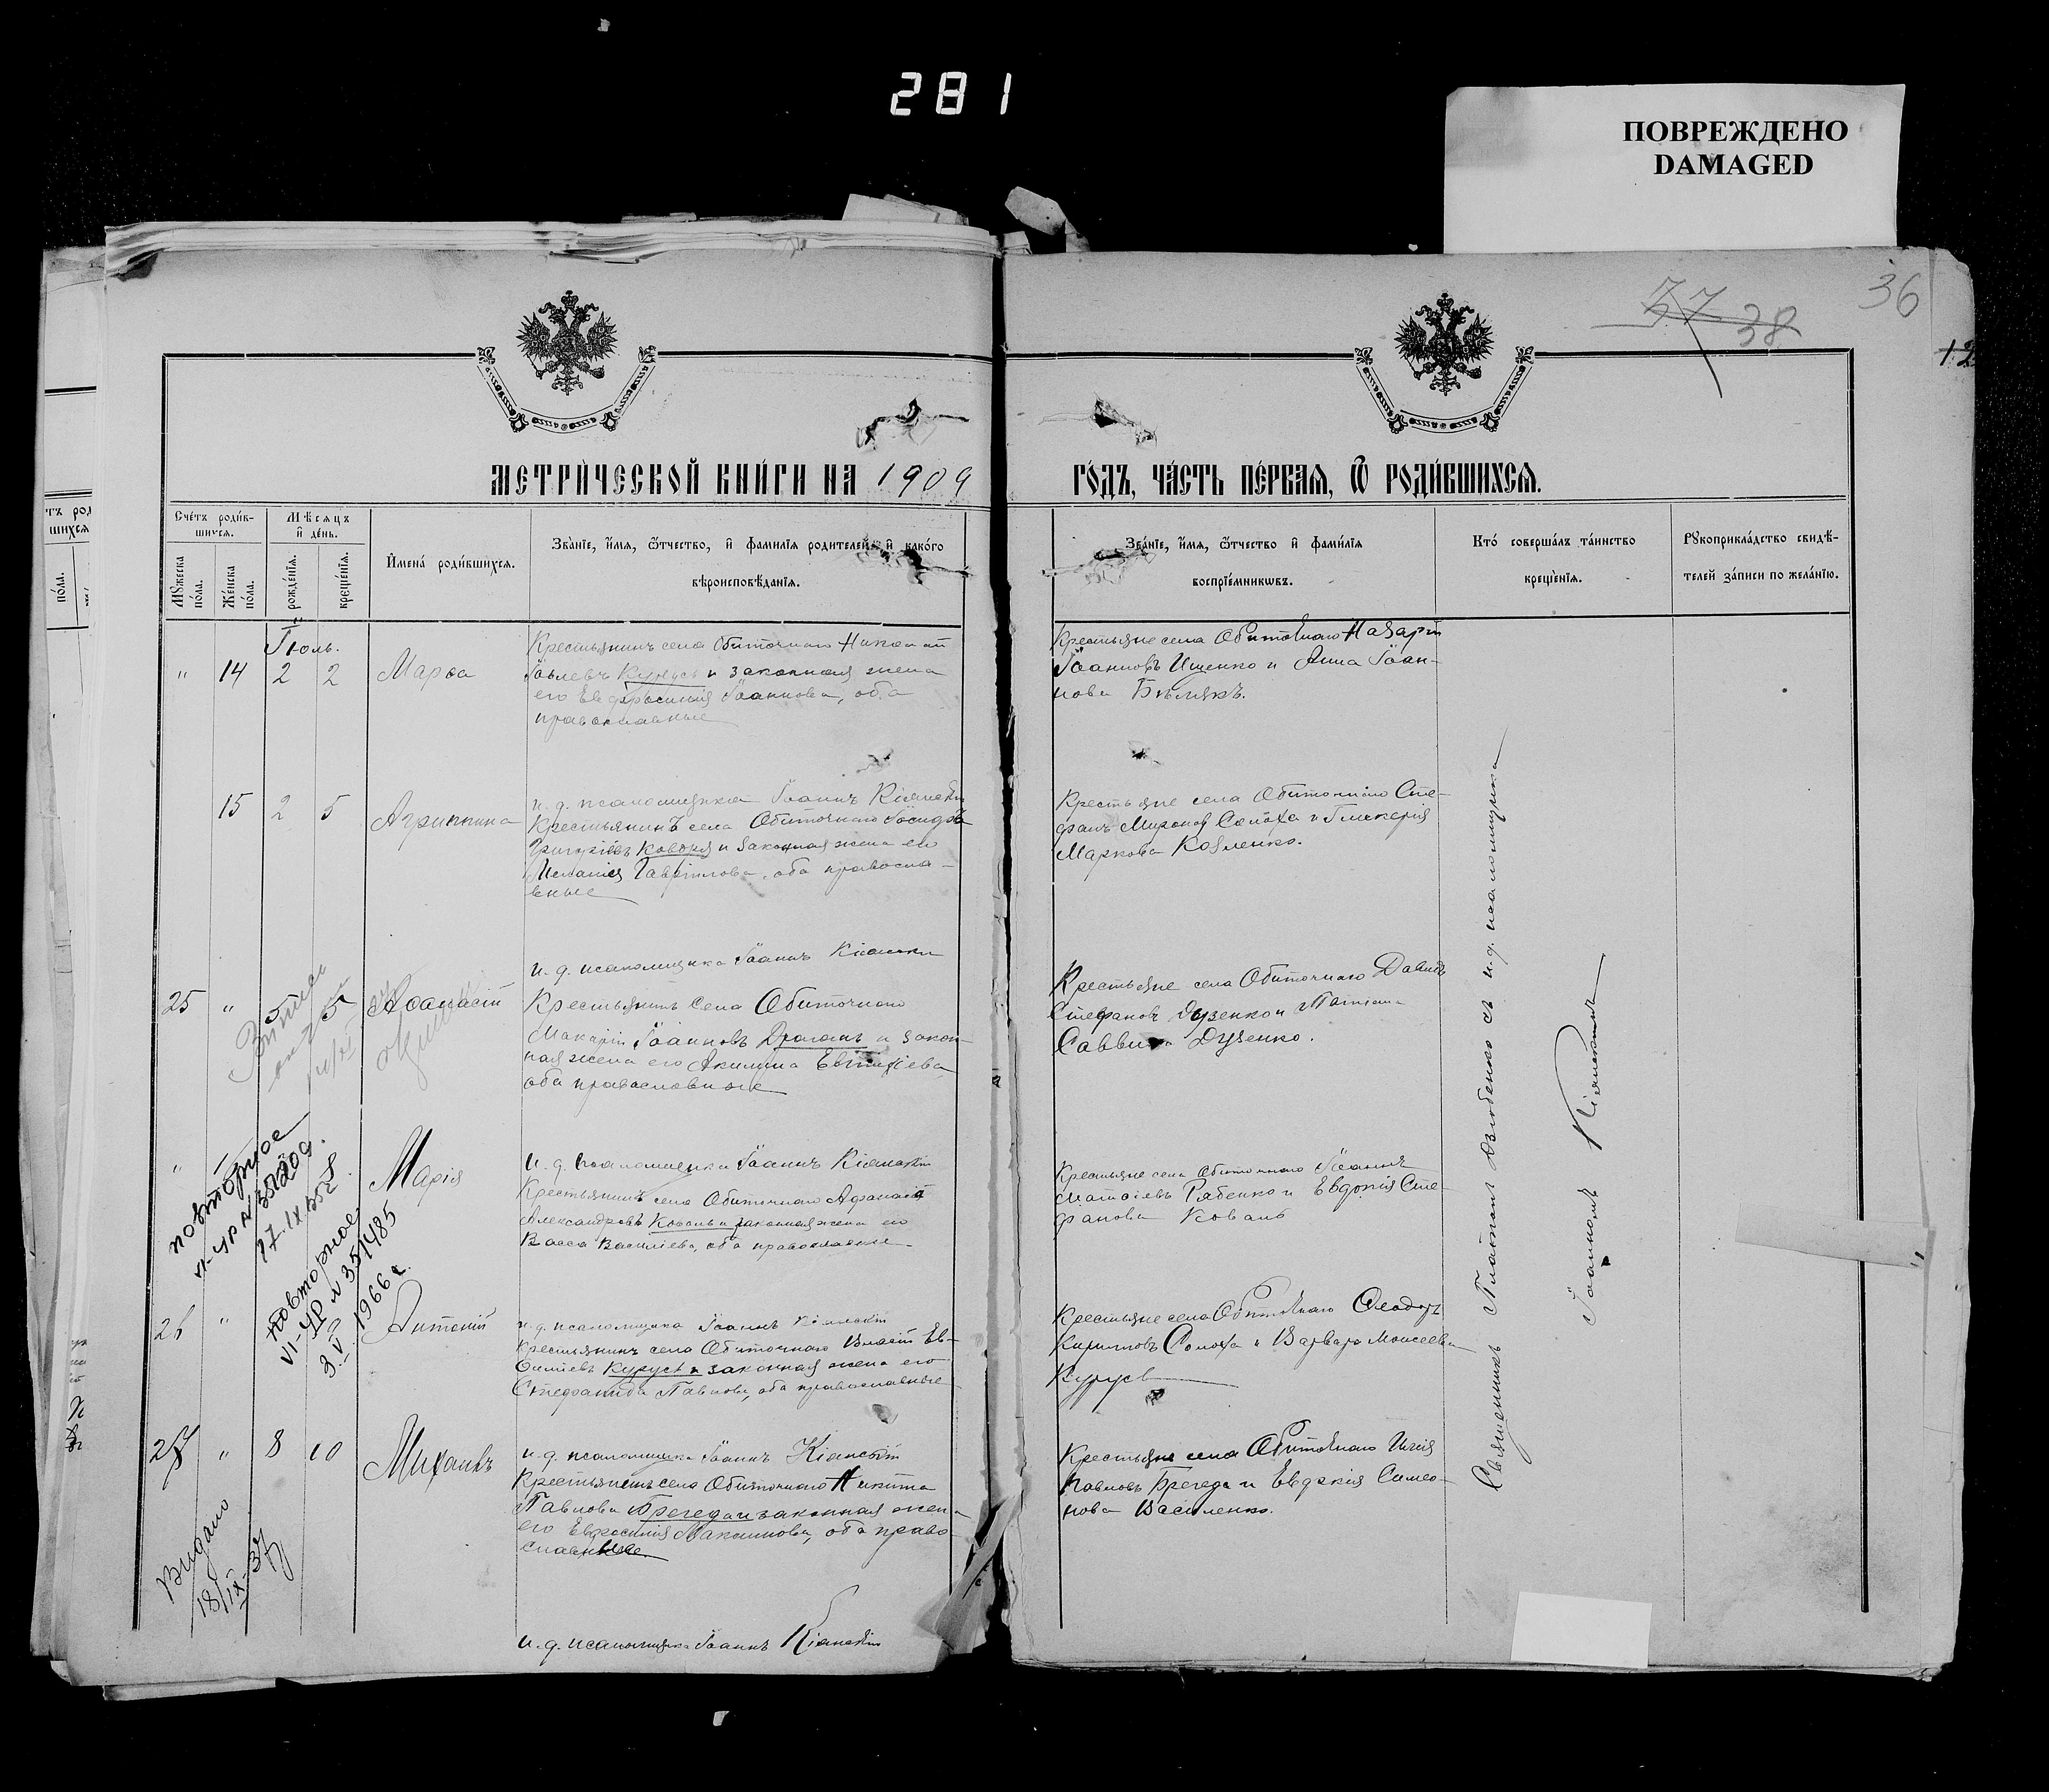 281
ПОВРЕЖДЕНО
DAMAGED
36
37 38
12
МЕТРИ́ЧЕСКОЙ КНИ́ГИ НА 1909
ГО́ДЪ, ЧА́СТЬ ПЕ́РВАѦ, Ѿ РОДИ́ВШИХСѦ.
Сче́тъ роди́в-
шихся.
Мѣсяцъ
и҆ де́нь.
Мꙋжеска по́ла.
Же́нска по́ла.
рожде́нїѧ.
креще́нїѧ.
И҆мена̀ роди́вшихсѧ.
Зва́нїе, и҆́мѧ, ѻ҆́тчество, и҆ фами́лїѧ родителей, и҆ како́гѡ
вѣроисповѣ́данїѧ.
Зва́нїе, и҆́мѧ, ѻ҆́тчество и҆ фами́лїѧ
воспрїе́мникѡвъ.
Кто̀ соверша́лъ та́инство
креще́нїѧ.
Рꙋкоприкла́дство свидѣ́-
телей за́писи по жела́нїю.
Іюль.
" 14 2 2 Марѳа
Крестьянинъ села Обиточнаго Николай
Іовлевъ Кунусь и законная жена
его Евфросинія Іоаннова, оба
православные
Крестьяне села Обиточнаго Назарій
Іоанновъ Ищенко и Анна Іоан-
нова Бѣлякъ.
15 2 5 Агриппина
и. д. псаломщика Іоаннъ Кіянскій
Крестьянинъ села Обиточнаго Іосифъ
Григоріевъ и законная жена его
Меланія Гавріилова, оба правосла-
вные
Крестьяне села Обиточнаго Сте-
фанъ Мироновъ Солоха и Гликерія
Маркова Козленко.
и. д. псаломщика Іоаннъ Кіянскій
25 " 5 5 Аѳанасій
Крестьянинъ села Обиточнаго
Макарій Іоанновъ Драганъ и закон-
ная жена его Акилина Евтихіева
оба православные
Крестьяне села Обиточнаго Давидъ
Стефановъ Дузенко и Татіана
Саввина Дузенко.
повторное
17.IX.
" Марія
и. д. псаломщика Іоаннъ Кіянскій
Крестьянинъ села Обиточнаго Афанасій
Александровъ Коваль и законная жена его
Васса Василіева, оба православные
Крестьяне села Обиточнаго Іоаннъ
Матѳіевъ Рябенко и Евдокія Сте-
фанова Коваль
повторное
VI-УР № 351485
3.VI.1966 г.
26 " Антоній
и. д. псаломщика Іоаннъ Кіянскій
Крестьянинъ села Обиточнаго Власій Ев-
ѳиміевъ Курусь и законная жена его
Стефанида Павлова, оба православные
Крестьяне села Обиточнаго Ѳеодоръ
Кирилловъ Солоха и Варвара Моисеева
Курусь
27 " 8 10 Михаилъ
и. д. псаломщика Іоаннъ Кіянскій
Крестьянинъ села Обиточнаго Никита
Павловъ Брегеда и законная жена
его Евфросинія Максимова, оба право-
славные.
Крестьяне села Обиточнаго Илія
Павловъ Брегеда и Евдокія Симео-
нова Василенко.
Видано
18/IX-37
и. д. псаломщика Іоаннъ Кіянскій
Священникъ Платонъ Дзюбенко съ и. д. псаломщика
Іоанномъ Кіянскимъ